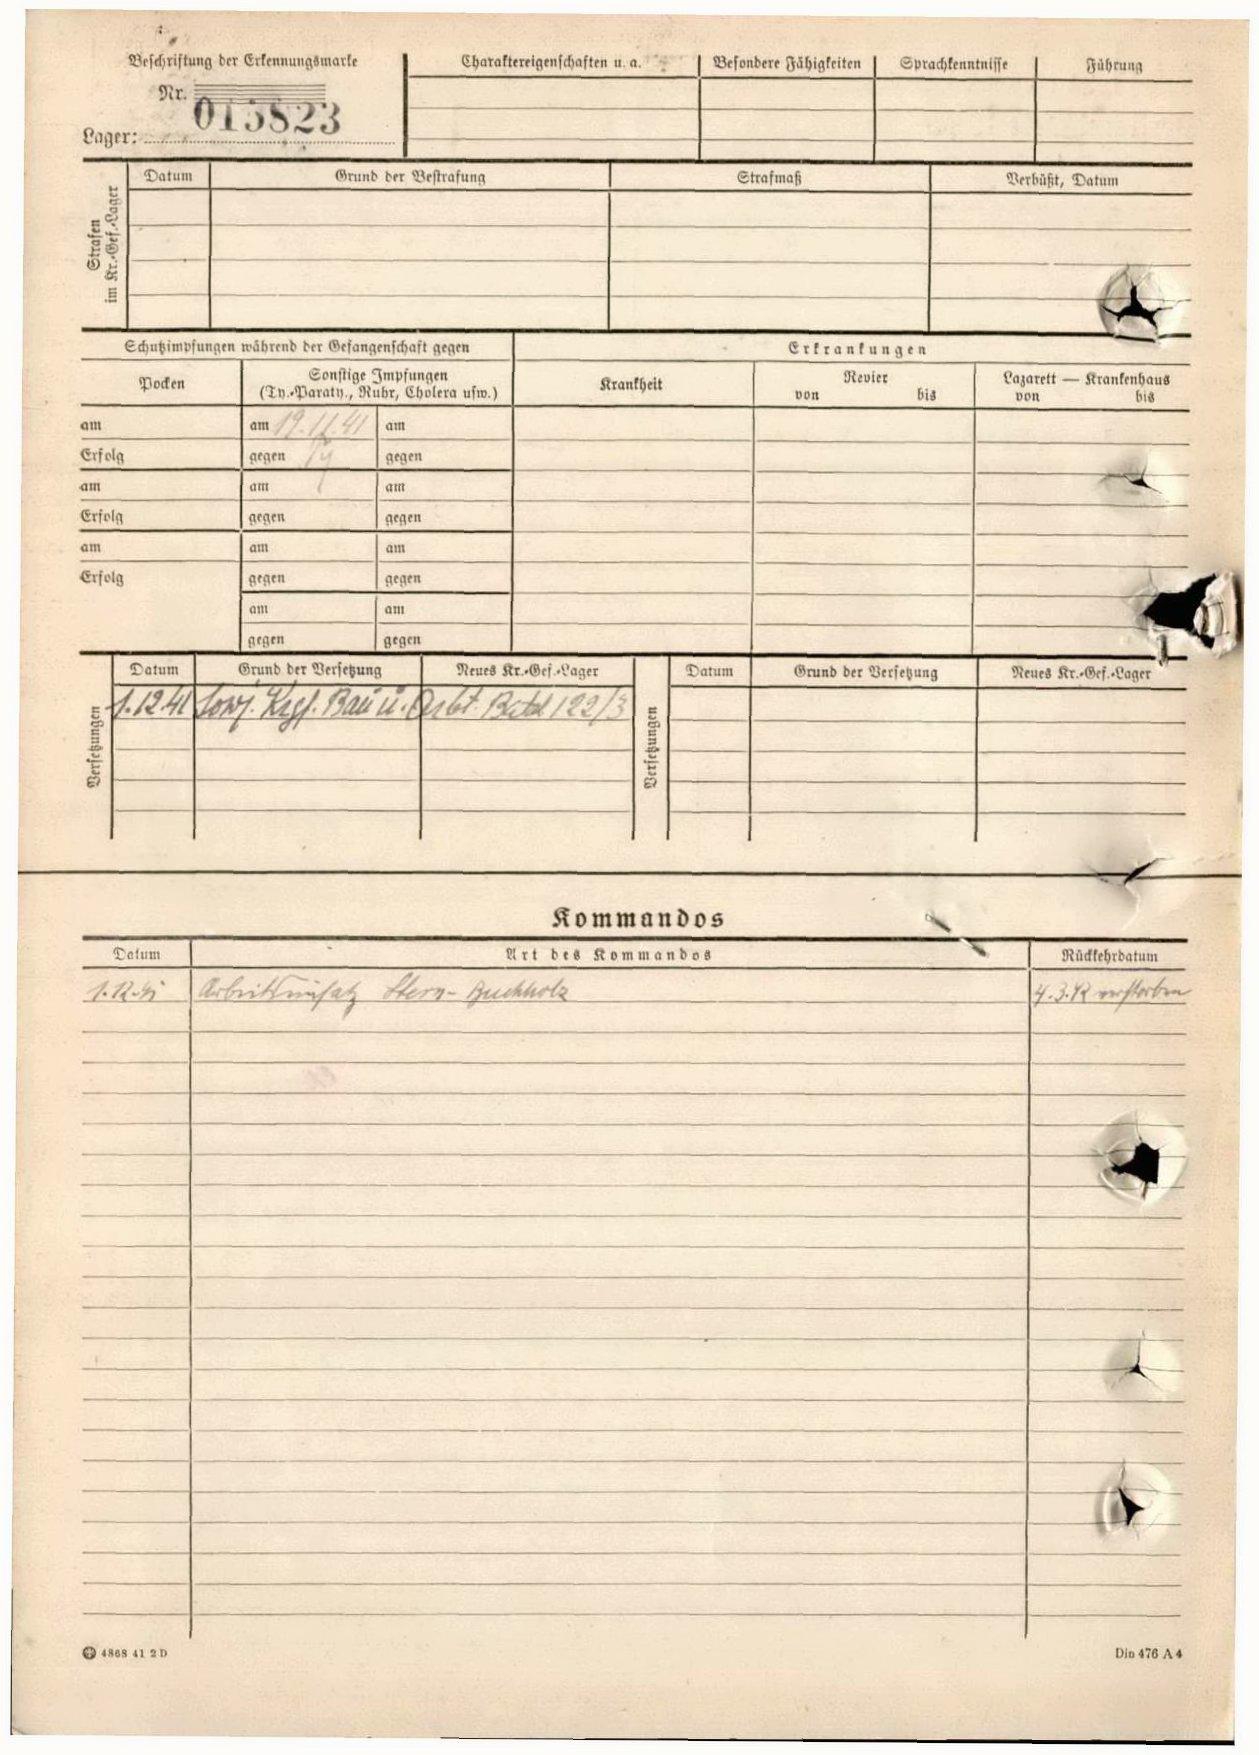 Beschriftung der Erkennungsmarke
Nr. 015823
Lager:
Charaktereigenschaften u. a.
Besondere Fähigkeiten
Sprachkenntnisse
Führung
Strafen
im Kr.-Gef.-Lager
Datum
Grund der Bestrafung
Strafmaß
Verbüßt, Datum
Schutzimpfungen während der Gefangenschaft gegen
Erkrankungen
Pocken
Sonstige Impfungen
(Ty.-Paraty., Ruhr, Cholera usw.)
Krankheit
Revier
von bis
Lazarett — Krankenhaus
von bis
am am 19.11.41 am
Erfolg gegen Ty gegen
am am am
Erfolg gegen gegen
am am am
Erfolg gegen gegen
am am
gegen gegen
Versetzungen
Datum Grund der Versetzung Neues Kr.-Gef.-Lager
1.12.41 Sowj. Krgf. Bau u. Arbt. Batl 122/3
Versetzungen
Datum Grund der Versetzung Neues Kr.-Gef.-Lager
Kommandos
Datum Art des Kommandos Rückkehrdatum
1.12.41 Arbeitseinsatz Stern-Buchholz 4.3.42 verstorben
4868 41 2 D
Din 476 A 4